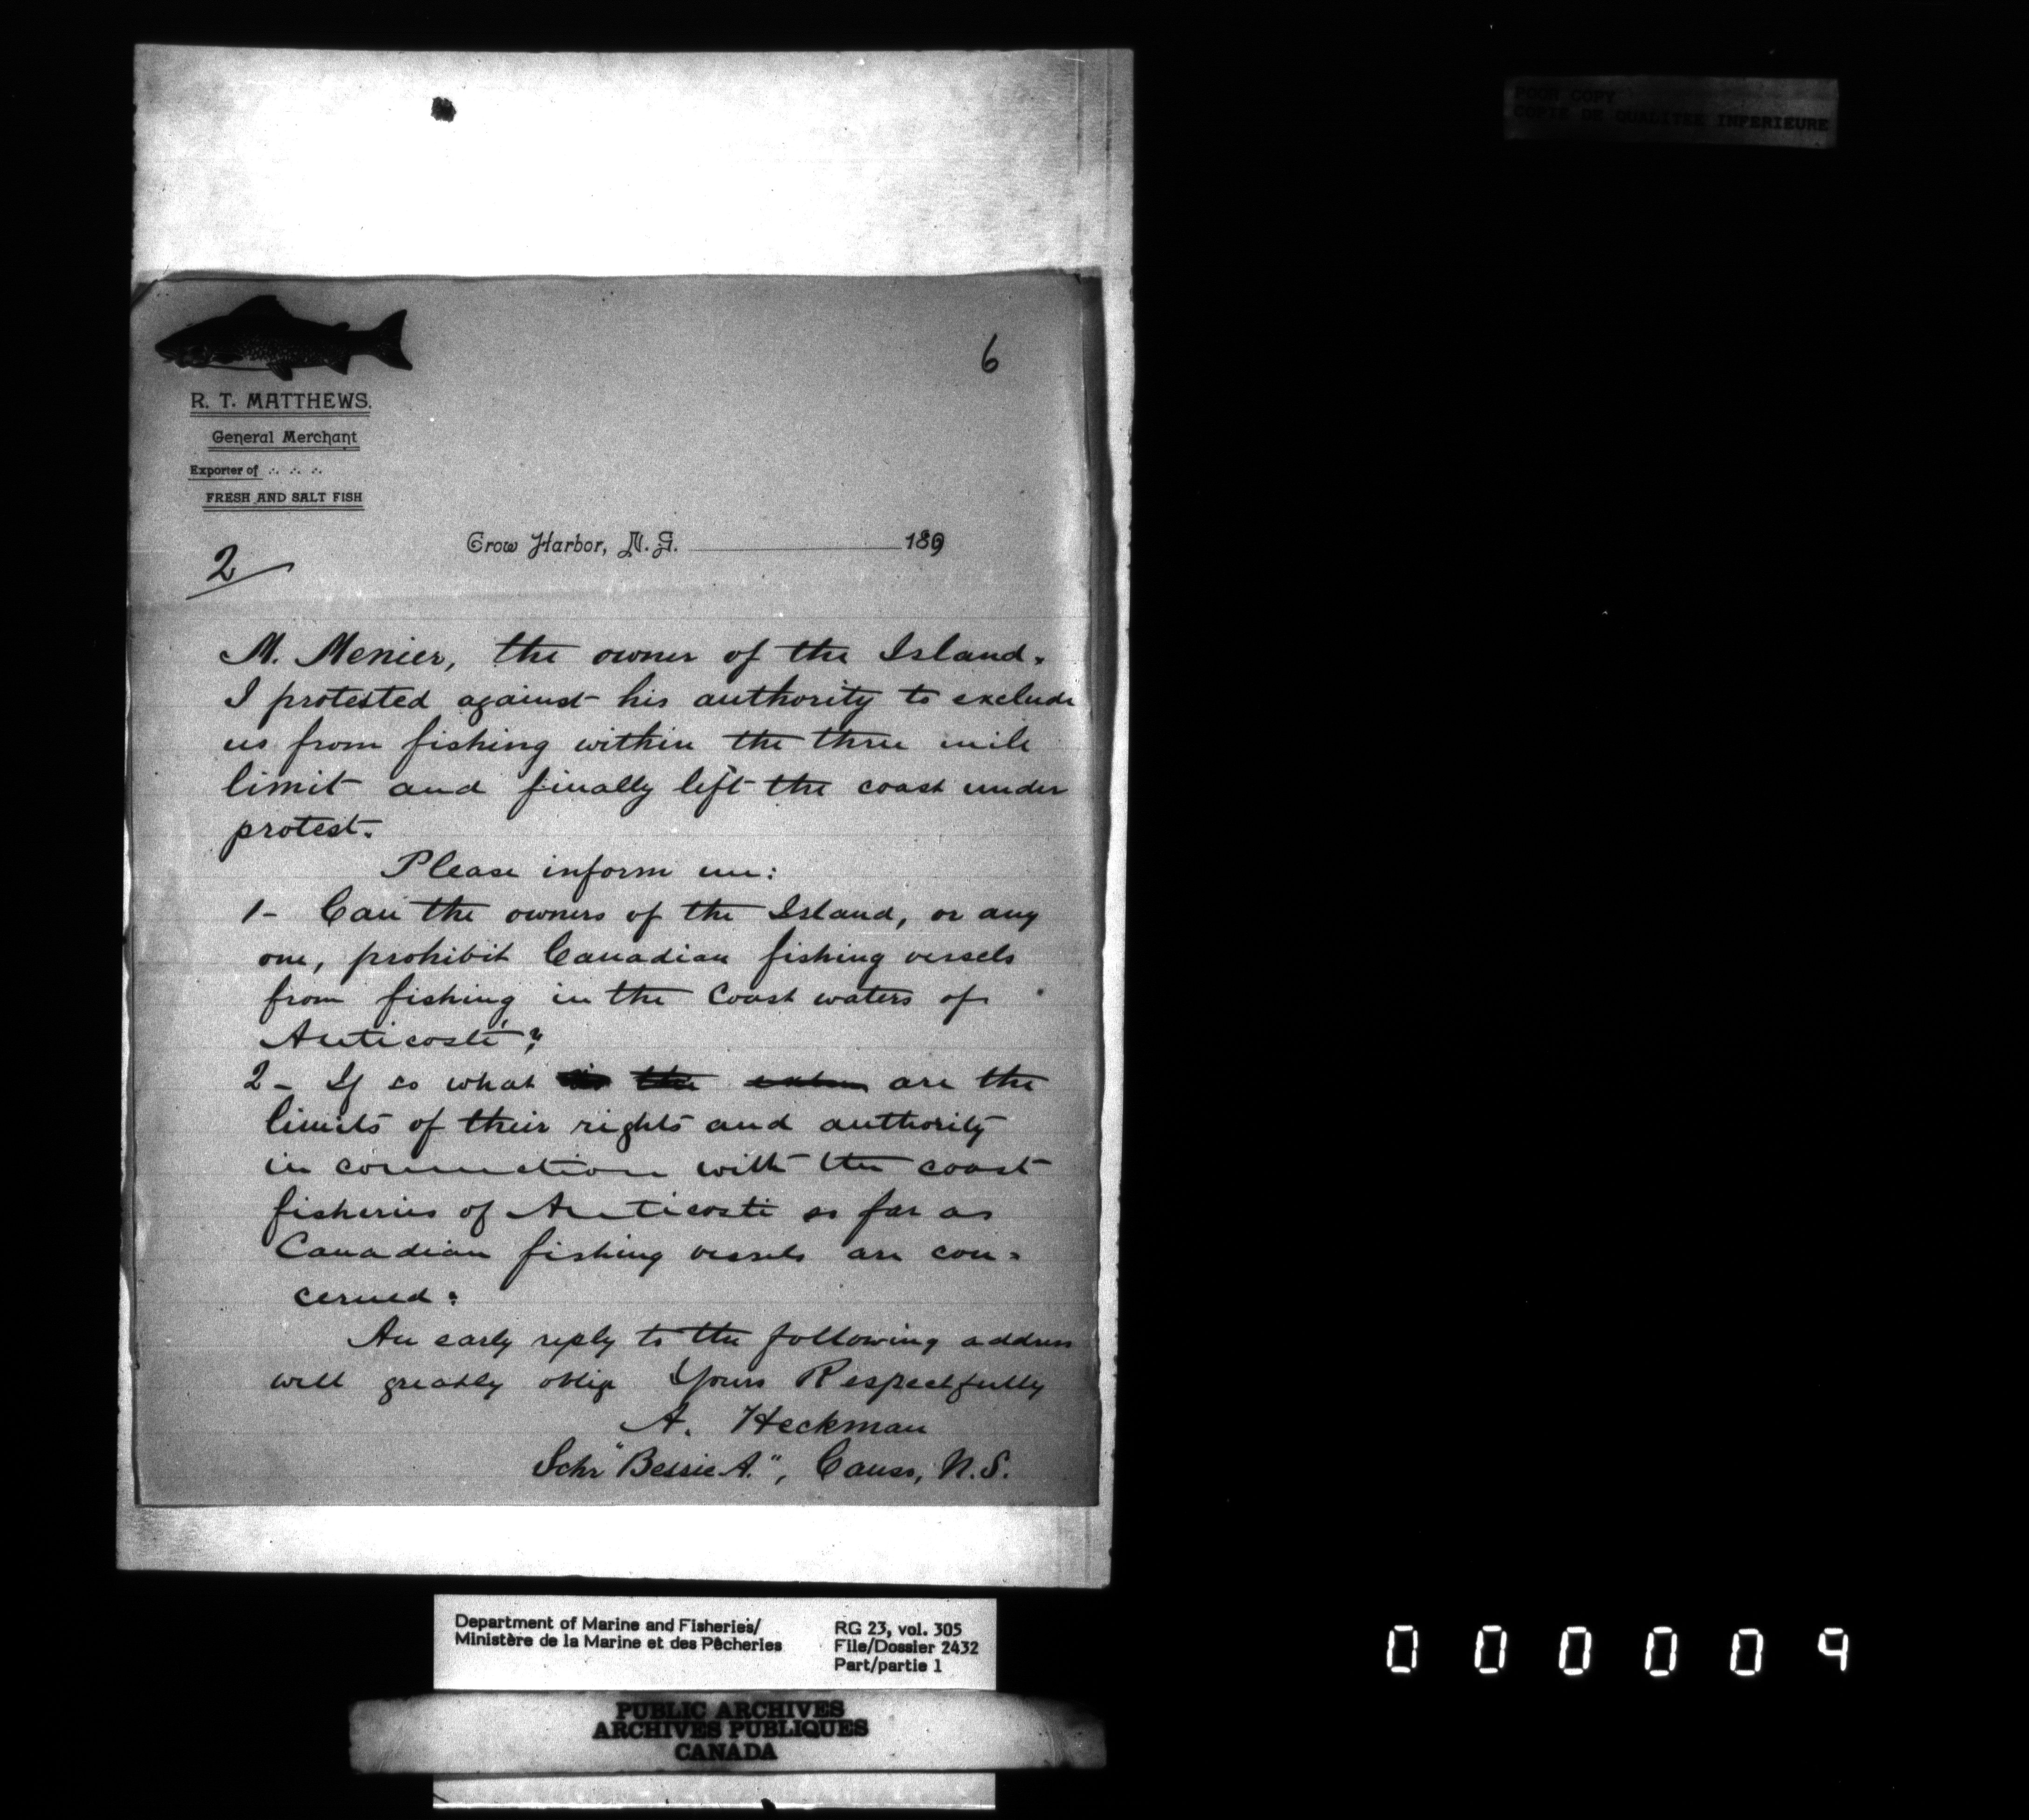 POOR COPY
COPIE DE QUALITEE INFERIEURE
6
R. T. MATTHEWS.
General Merchant
Exporter of
FRESH AND SALT FISH
Crow Harbor, N. S. 189
2
M. Menier, the owner of the Island.
I protested against his authority to exclude
us from fishing within the three mile
limit and finally left the coast under
protest.
Please inform me:
1- Can the owners of the Island, or any
one, prohibit Canadian fishing vessels
from fishing in the Coast waters of
Anticosti?
2- If so what is the are the
limits of their rights and authority
in connection with the coast
fisheries of Anticosti so far as
Canadian fishing vessels are con=
cerned:
An early reply to the following address
will greatly oblige Yours Respectfully
A. Heckman
Schr "Bessie A.", Canso, N.S.
Department of Marine and Fisheries/
Ministère de la Marine et des Pêcheries
RG 23, vol. 305
File/Dossier 2432
Part/partie 1
PUBLIC ARCHIVES
ARCHIVES PUBLIQUES
CANADA
000009